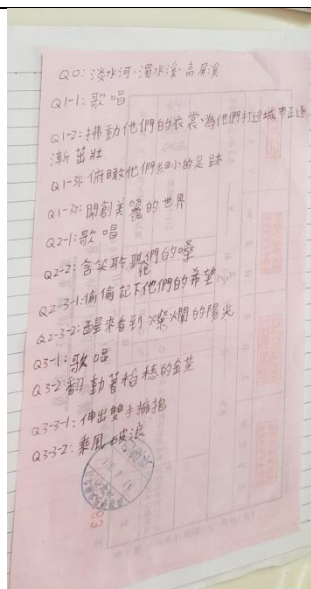 Q0: 淡水河、濁水溪、高屏溪
Q1-1: 歌唱
Q1-2: 拂動他們的衣裳、為他們打造城市正逐
漸茁壯
Q1-3: 俯瞰他們細小的足跡
Q1-3: 開創美麗的世界
Q2-1: 歌唱
Q2-2: 含笑聆聽他們的嗓
Q2-3-1: 偷偷記下他們的希望
Q2-3-2: 醒來看到燦爛的陽光
Q3-1: 歌唱
Q3-2: 翻動著稻穗的金黃
Q3-3-1: 伸出雙手擁抱
Q3-3-2: 乘風破浪